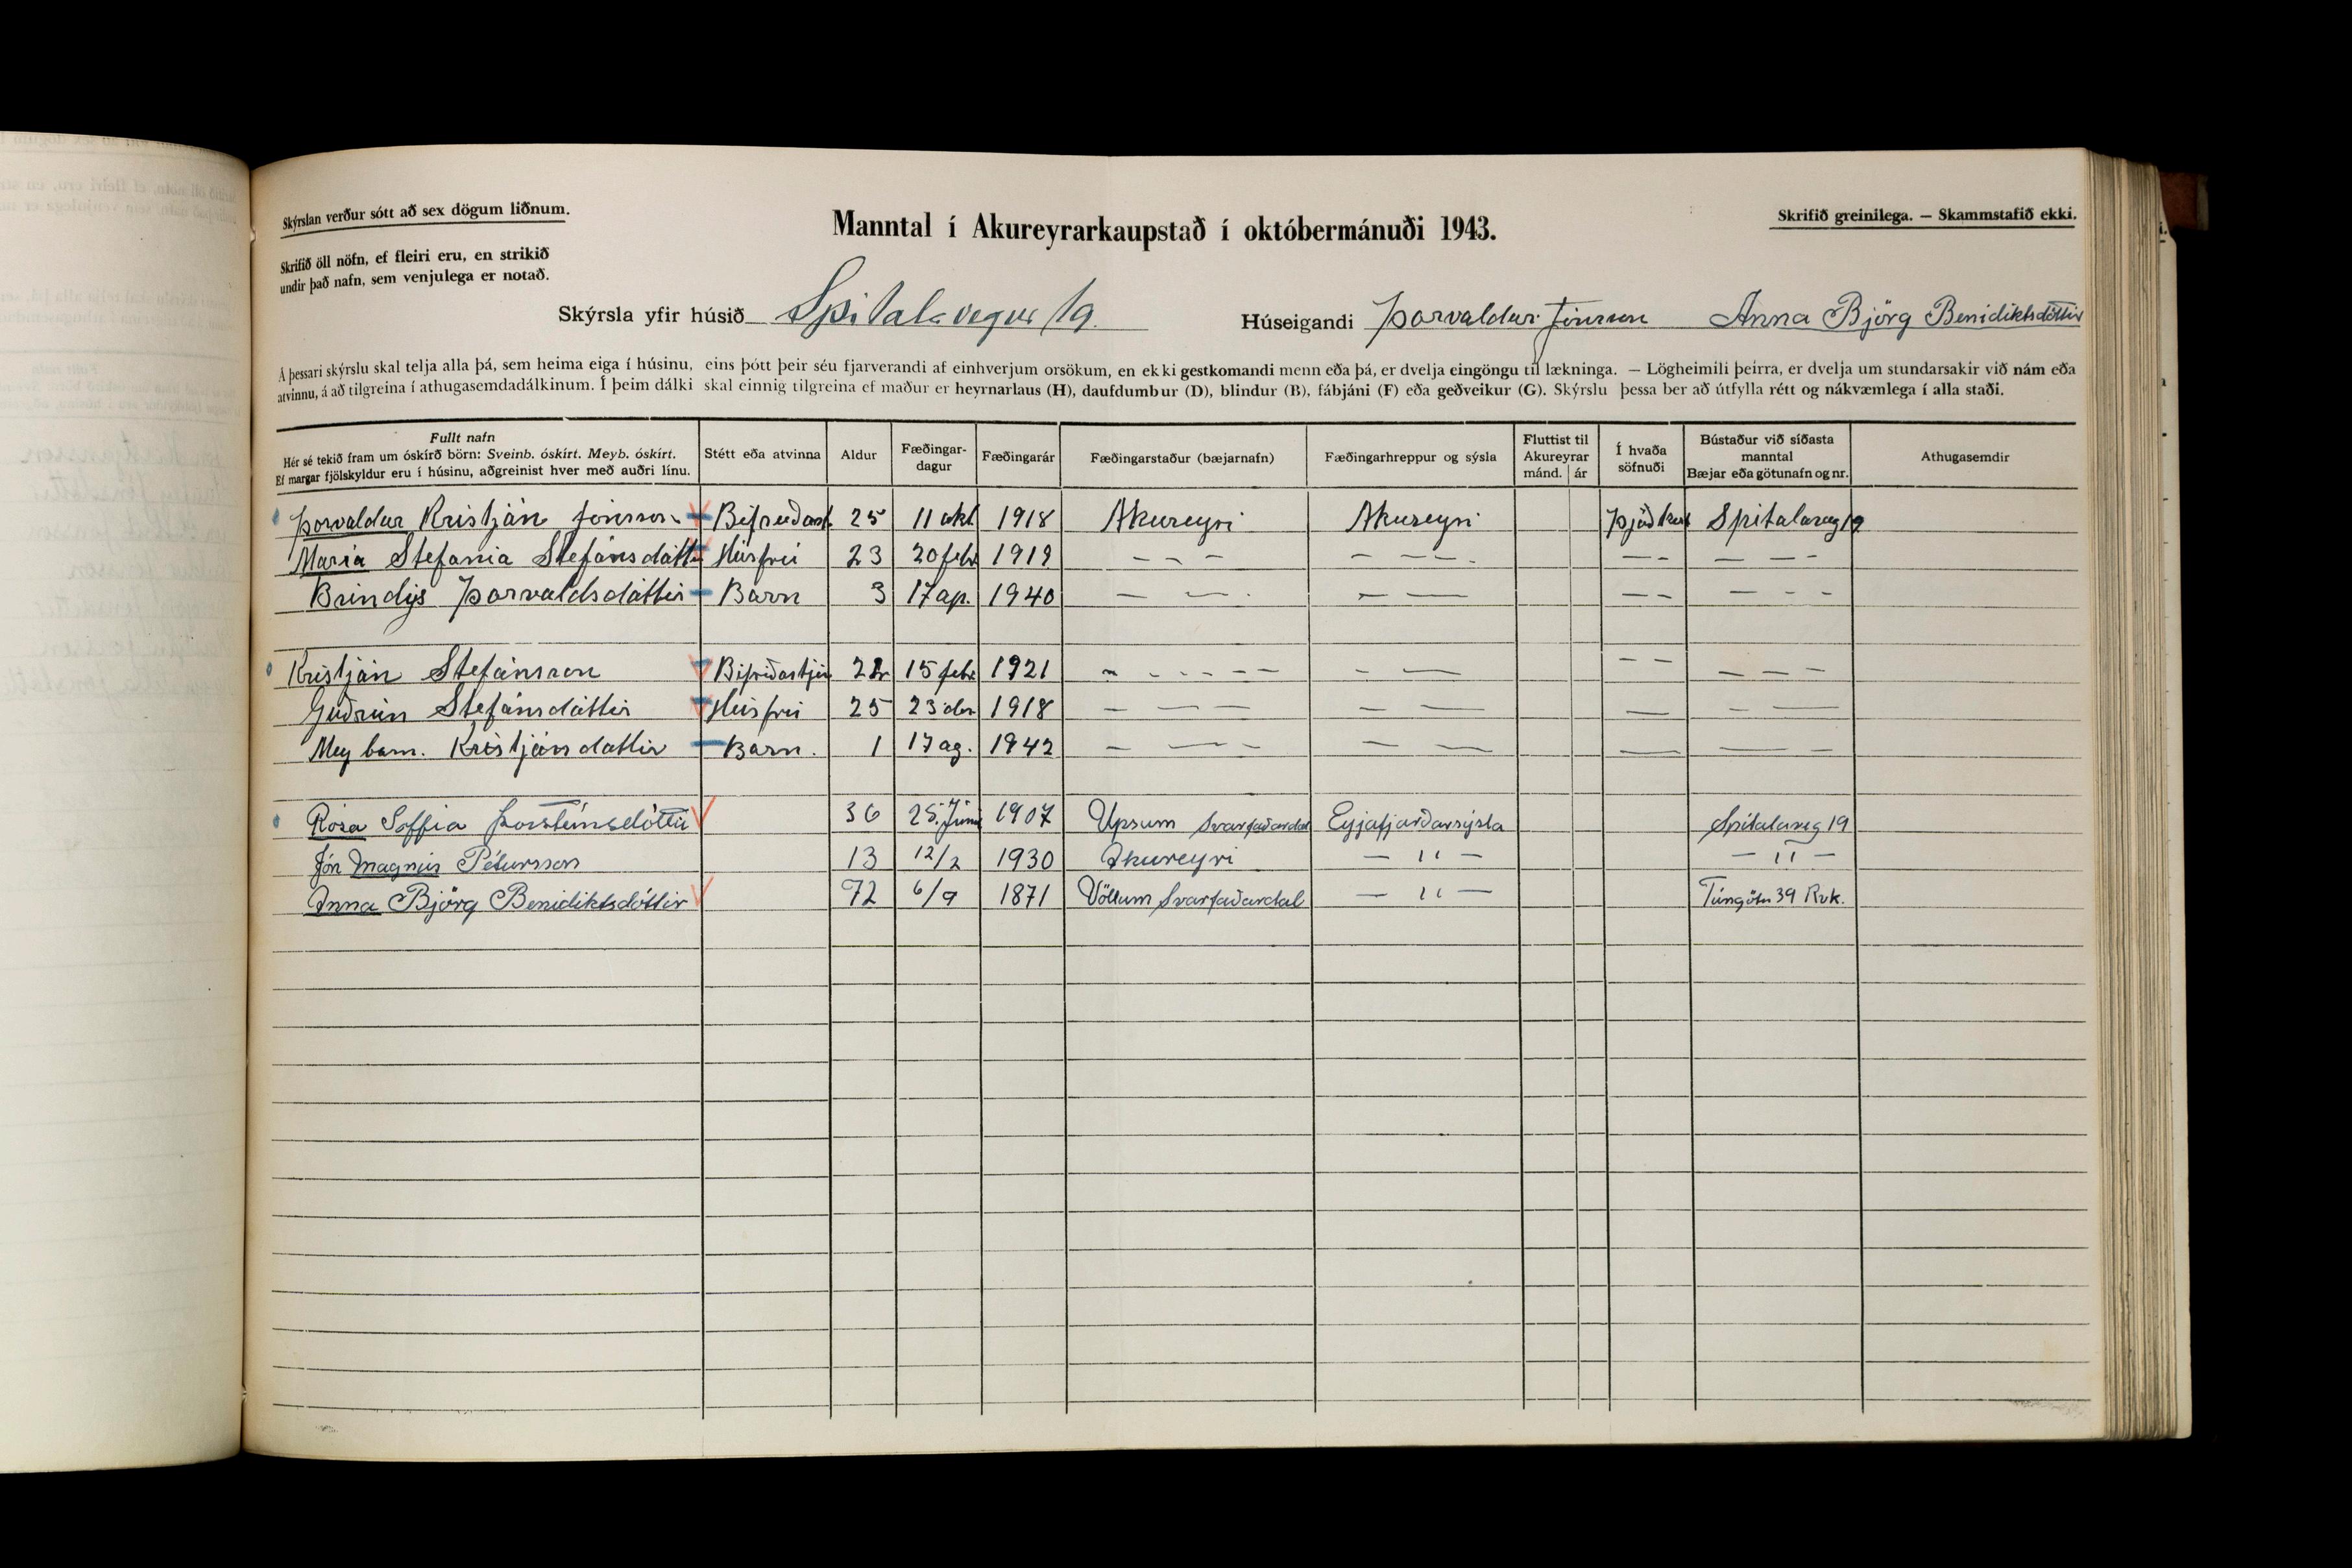 Skýrslan verður sótt að sex dögum liðnum.
Manntal í Akureyrarkaupstað í októbermánuði 1943.
Skrifið greinilega. — Skammstafið ekki.
Skrifið öll nöfn, ef fleiri eru, en strikið
undir það nafn, sem venjulega er notað.
Skýrsla yfir húsið Spitalavegur 19. Húseigandi Þorvaldur Jónsson Anna Björg Benidiktsdóttir
Á þessari skýrslu skal telja alla þá, sem heima eiga í húsinu, eins þótt þeir séu fjarverandi af einhverjum orsökum, en ekki gestkomandi menn eða þá, er dvelja eingöngu til lækninga. — Lögheimili þeirra, er dvelja um stundarsakir við nám eða
atvinnu, á að tilgreina í athugasemdadálkinum. Í þeim dálki skal einnig tilgreina ef maður er heyrnarlaus (H), daufdumbur (D), blindur (B), fábjáni (F) eða geðveikur (G). Skýrslu þessa ber að útfylla rétt og nákvæmlega í alla staði.
Fullt nafn
Hér sé tekið fram um óskírð börn: Sveinb. óskírt. Meyb. óskírt.
Ef margar fjölskyldur eru í húsinu, aðgreinist hver með auðri línu.
Stétt eða atvinna
Aldur
Fæðingar-
dagur
Fæðingarár
Fæðingarstaður (bæjarnafn)
Fæðingarhreppur og sýsla
Fluttist til
Akureyrar
mánd. | ár
Í hvaða
söfnuði
Bústaður við síðasta
manntal
Bæjar eða götunafn og nr.
Athugasemdir
Þorvaldur Kristján Jónsson Bifreiðast. 25 11 okt. 1918 Akureyri Akureyri Spitalaveg 19
María Stefania Stefánsdóttir Húsfrú 23 20 febr 1919 — — — — — — — — — — —
Brindýs Þorvaldsdóttir Barn 3 17 ap. 1940 — — — — — — — — —
Kristján Stefánsson Bifriðastjóri 22 15 febr 1921 — — — — — — — — — — —
Guðrún Stefánsdóttir Húsfrú 25 23 1918 — — — — — — — —
Mey barn. Kristjánsdóttir Barn. 1 17 ag. 1942 — — — — — — — —
Rósa Soffia Þorsteinsdóttir 36 25. Júni 1907 Upsum Svarfaðardal Eyjafjarðarsýsla Spitalaveg 19
Jón Magnús Pétursson 13 12/2 1930 Akureyri — " — — " —
Anna Björg Benidiktsdóttir 72 6/9 1871 Völlum Svarfaðardal — " — Túngötu 39 Rvk.